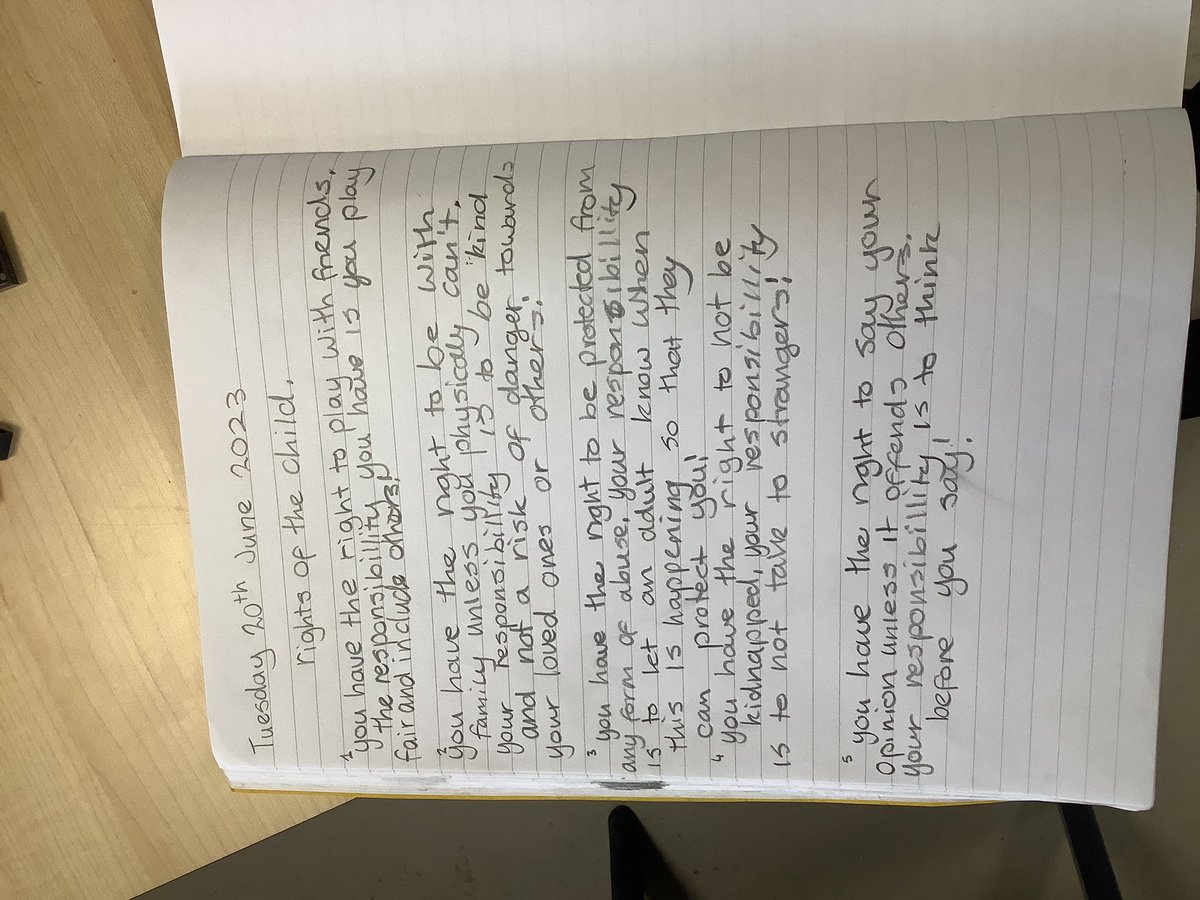 Tuesday 20th June 2023
rights of the child.
1 you have the right to play with friends,
the responsibillity you have is you play
fair and include others!
2 you have the right to be with
family unless you physicaly can't,
your responsibility is to be kind
and not a risk of danger towards
your loved ones or others!
3 you have the right to be protected from
any form of abuse, your responsibillity
is to let an adult know when
this is happening so that they
can protect you!
4 you have the right to not be
kidnapped, your responsibillity
is to not talk to strangers!
5 you have the right to say your
opinion unless it offends others,
your responsibillity is to think
before you say!